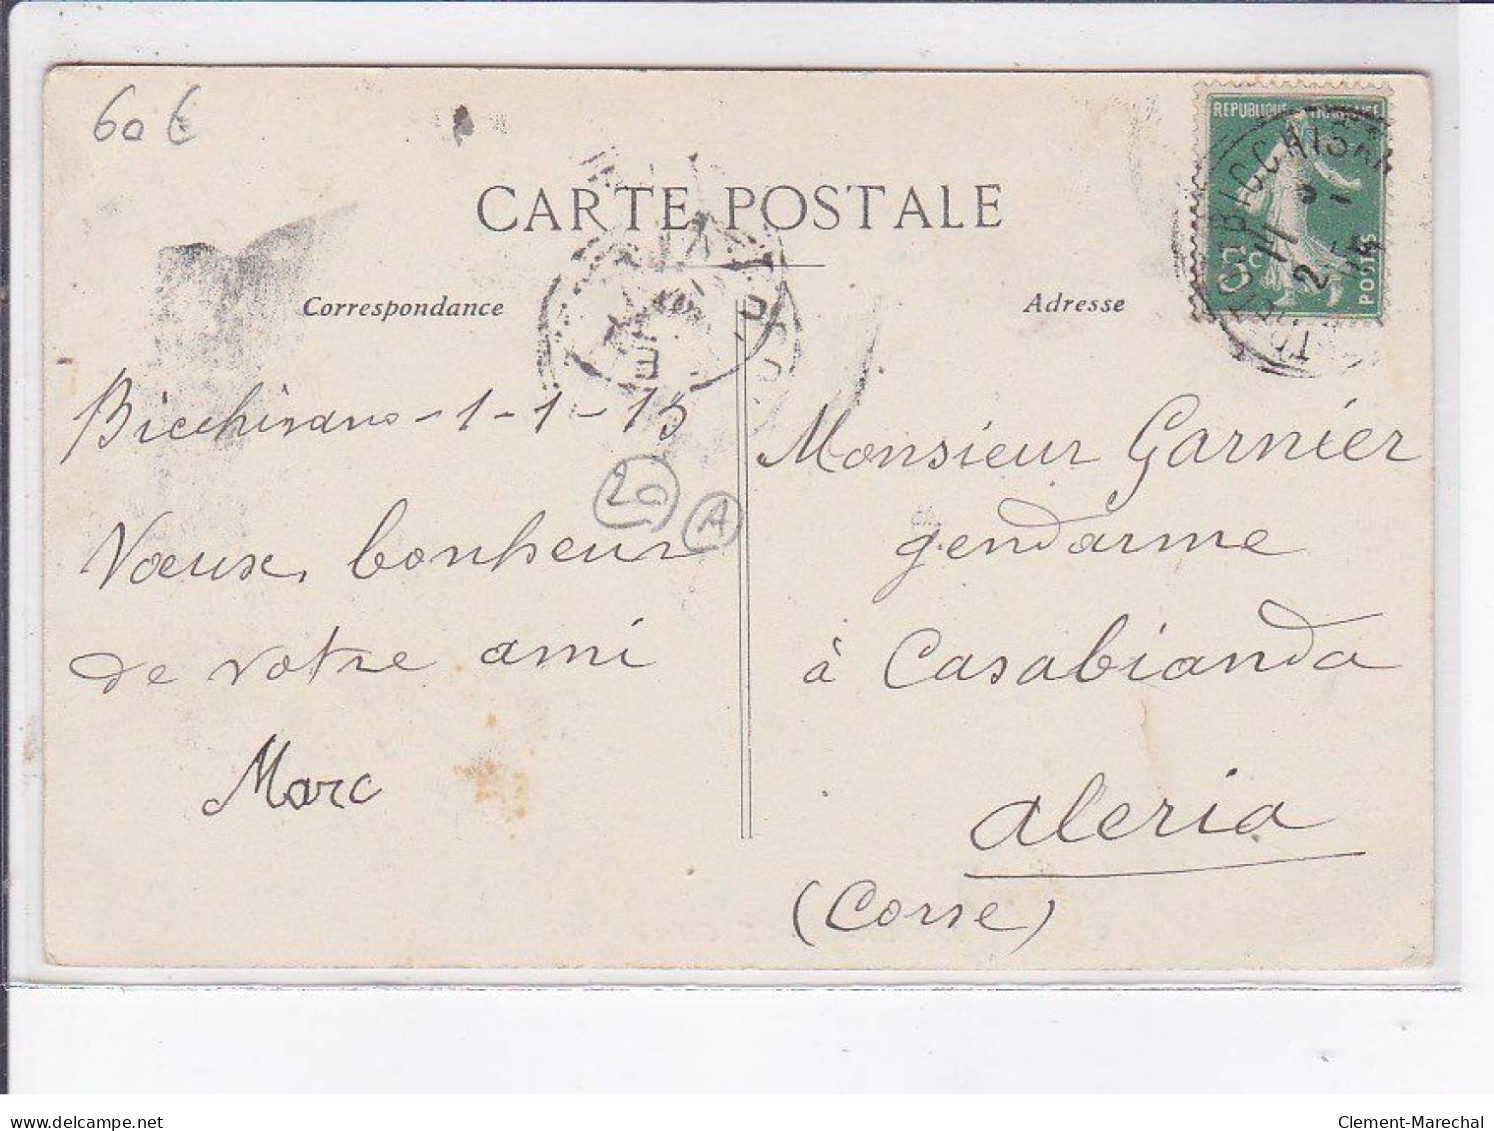 60 €
CARTE POSTALE
Correspondance
Adresse
REPUBLIQUE FRANÇAISE
5c
POSTES
BICCHISANO
Bicchisano - 1 - 1 - 15
20
A
Vœux, bonheur
de votre ami
Marc
Monsieur Garnier
gendarme
à Casabianda
aleria
(Corse)
delcampe.net
Clement-Marechal